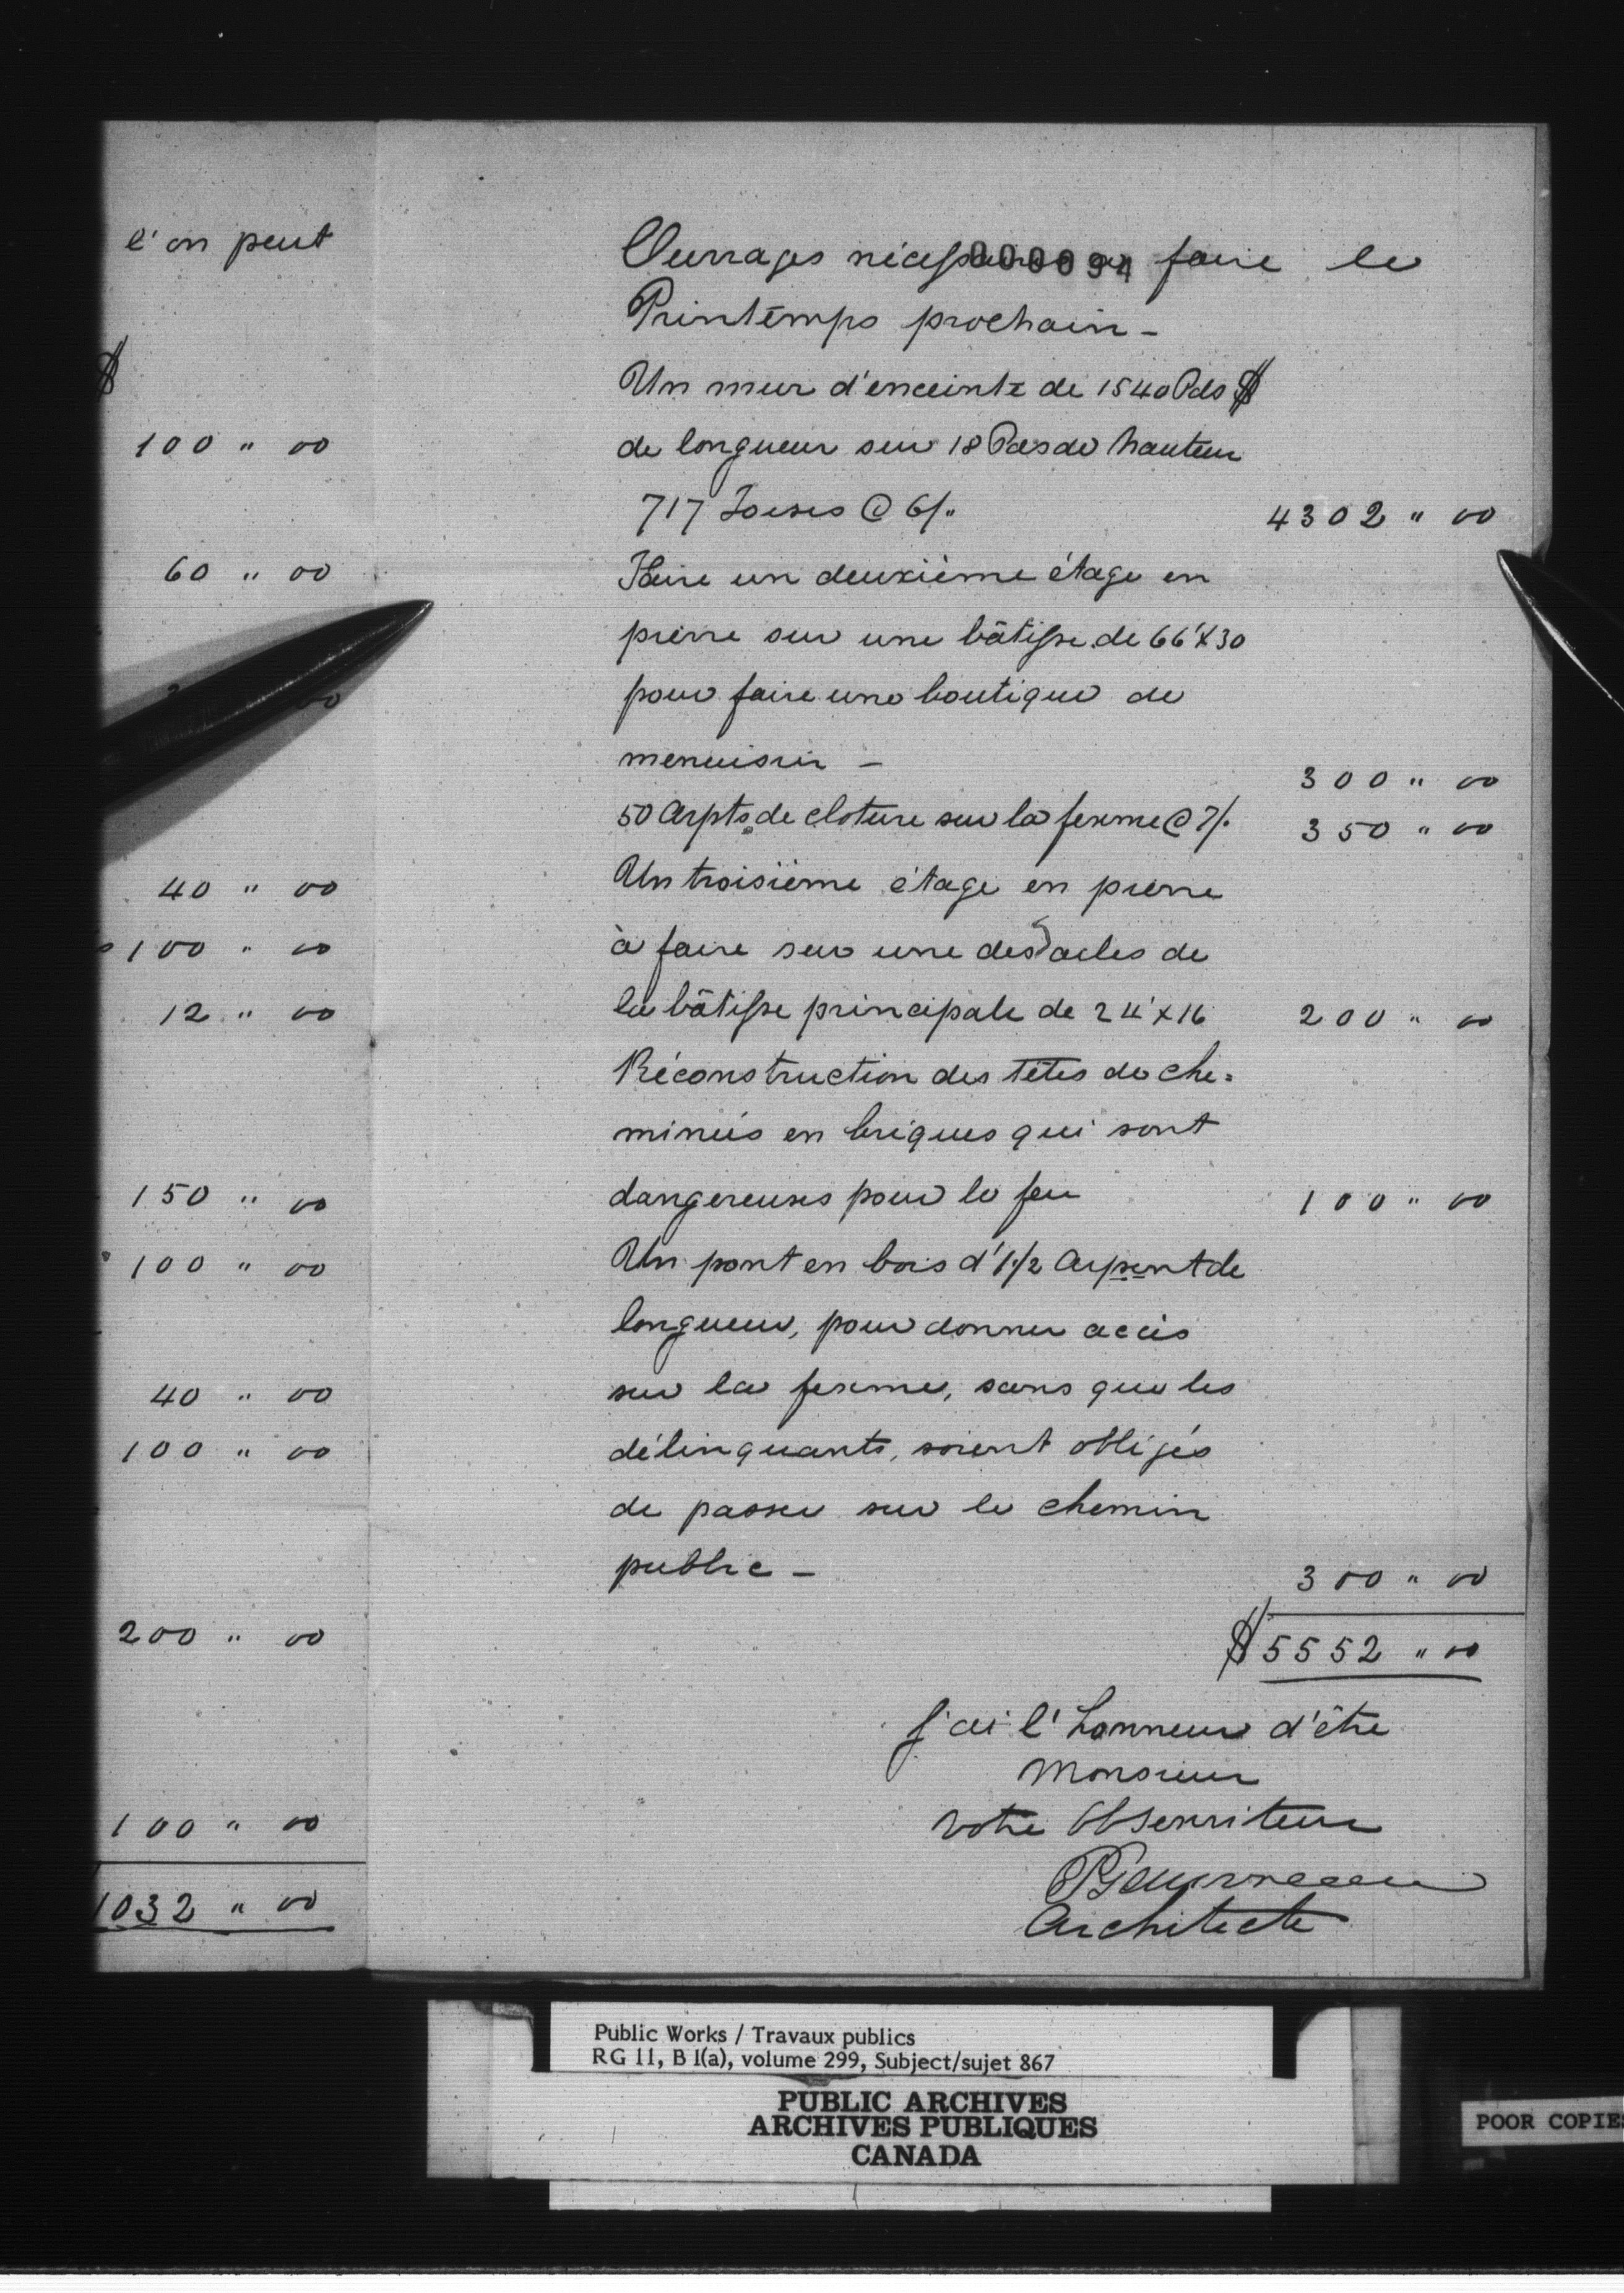 l'on peut
$
100 " 00
60 " 00
00
40 " 00
100 " 00
12 " 00
150 " 00
100 " 00
40 " 00
100 " 00
200 " 00
100 " 00
1032 " 00
000094
Ouvrages faire le
Printemps prochain -
Un mur d'enceinte de 1540 Pds $
de longueur sur 18 Pds de hauteur
717 Toises @ 6/. 4302 " 00
Faire un deuxième étage en
pierre sur une bâtisse de 66'x30
pour faire une boutique de
menuisier - 300 " 00
50 Arpts de cloture sur la ferme @ 7/. 350 " 00
Un troisième étage en pierre
à faire sur une des ailes de
la bâtisse principale de 24'x16 200 " 00
Réconstruction des têtes de che=
minées en briques qui sont
dangereuses pour le feu 100 " 00
Un pont en bois d'1 1/2 Arpent de
longueur, pour donner accès
sur la ferme, sans que les
délinquants, soient obligés
de passer sur le chemin
public - 300 " 00
$ 5552 " 00
J'ai l'honneur d'être
Monsieur
Votre Observiteur
Architecte
Public Works / Travaux publics
RG 11, B 1(a), volume 299, Subject/sujet 867
PUBLIC ARCHIVES
ARCHIVES PUBLIQUES
CANADA
POOR COPIES